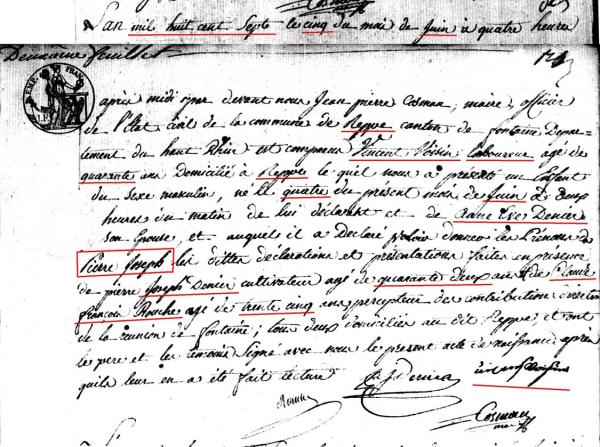 Cosman
L'an mil huit cent Sept le cinq du mois de Juin à quatre heures
Deuxieme feuillet
EMP. FRAN.
après midi par devant nous Jean pierre Cosman, maire, officier
de l'Etat civil de la commune de Reppe canton de fontaine Depar-
tement du haut Rhin est comparu Vincent Voisin Laboureur agé de
quarante ans Domicilié à Reppe le quel nous a présenté un Enfant
du Sexe masculin, né le quatre du présent mois de Juin à deux
heures du matin de lui déclarant et de anne Eve Denier
son Epouse, et auquel il a Declaré vouloir donner les Prénoms de
Pierre Joseph les dittes déclarations et présentations faites en présence
de pierre Joseph Denier cultivateur agé de quarante deux ans & de Claude
françois Roche agé de trente cinq ans percepteur des contributions
de la réunion de fontaine; tous deux domiciliés au dit Reppe, et ont
le pere et les temoins Signé avec nous le present acte de naissance après
qu'il leur en a été fait lecture
Cosman